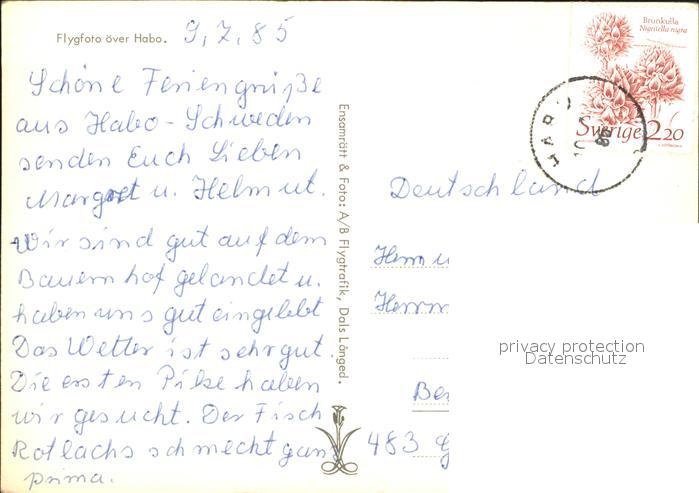 Flygfoto över Habo.
9.7.85
Schöne Feriengrüße
aus Habo-Schweden
senden Euch Lieben
Margret u. Helmut.
Wir sind gut auf dem
Bauernhof gelandet u.
haben uns gut eingelebt
Das Wetter ist sehr gut.
Die ersten Pilze haben
wir gesucht. Der Fisch
Rotlachs schmeckt ganz
prima.
Ensamrätt & Foto: A/B Flygtrafik, Dals Långed.
Brunkulla
Nigritella nigra
Sverige 2 20
HABO
Deutschland
Herrn u
Herrn
483
privacy protection
Datenschutz